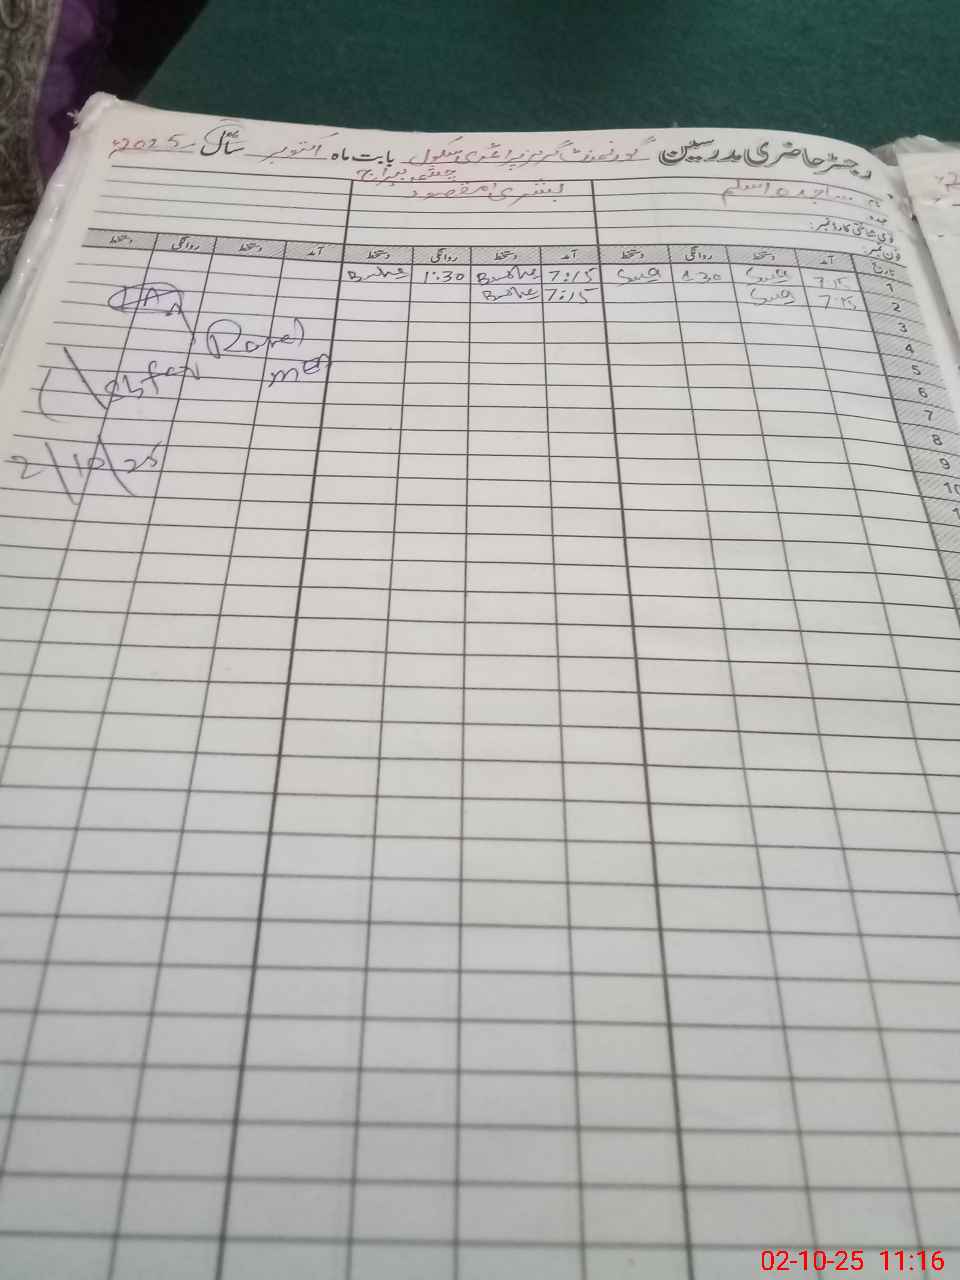 رجسٹر حاضری مدرسین گورنمنٹ گرلز پرائمری سکول بابت ماہ اکتوبر سال 2025ء
نام ساجدہ اسلم بشریٰ مقصود
عہدہ
قومی شناختی کارڈ نمبر:
فون نمبر:
تاریخ آمد دستخط روانگی دستخط آمد دستخط روانگی دستخط آمد دستخط روانگی دستخط
1 7:15 1:30 7:15 Bushra 1:30 Bushra
2 7:15 7:15 Bushra
3
4
5
6
7
8
9
10
2/10/25
02-10-25 11:16